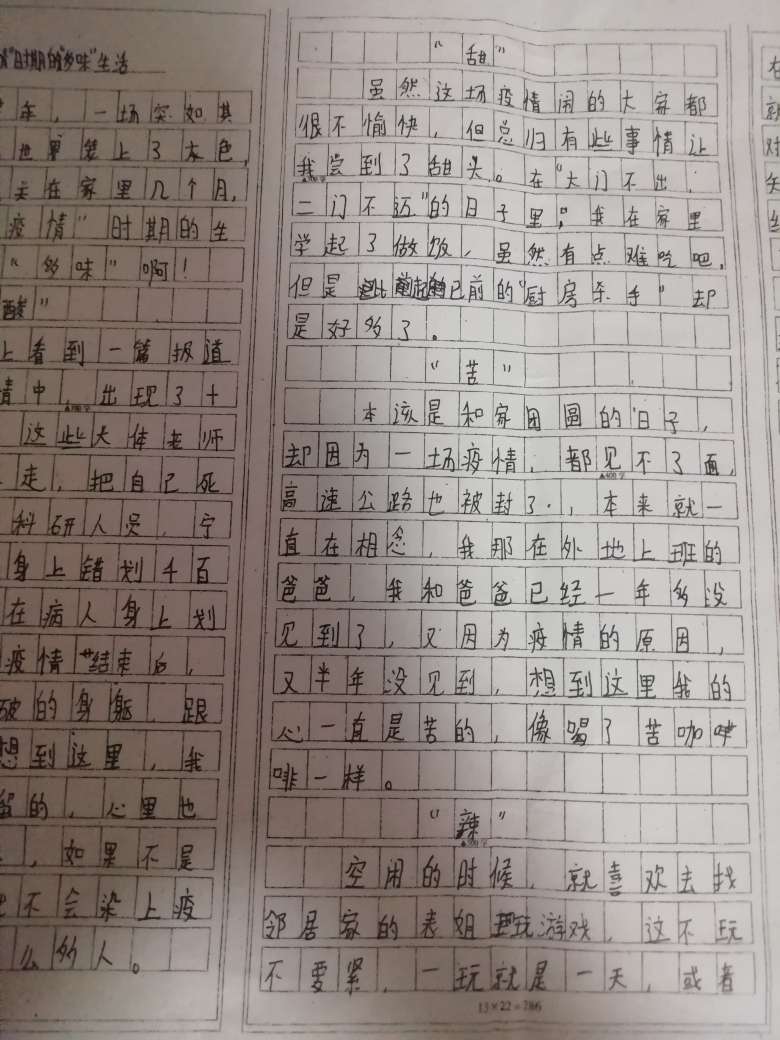 "时期的"多味"生活
年，一场突如其
世界蒙上了木色，
关在家里几个月，
疫情"时期的生
"多味"啊！
酸"
上看到一篇报道
情中，出现了十
▲300字
这些大体老师
走，把自己死
科研人员，宁
身上错划千百
在病人身上划
疫情"结束后，
破的身躯，跟
想到这里，我
留的，心里也
，如果不是
不会染上疫
么多人。
"甜"
虽然这场疫情闹的大家都
很不愉快，但总归有些事情让
我尝到了甜头。在"大门不出，
二门不迈"的日子里，我在家里
学起了做饭，虽然有点难吃吧，
但是比起已前的"厨房杀手"却
是好多了。
"苦"
本该是和家团圆的日子，
却因为一场疫情，都见不了面，
▲400字
高速公路也被封了，本来就一
直在相念，我那在外地上班的
爸爸，我和爸爸已经一年多没
见到了，又因为疫情的原因，
又半年没见到，想到这里我的
心一直是苦的，像喝了苦咖啡
啡一样。
"辣"
▲500字
空闲的时候，就喜欢去找
邻居家的表姐玩游戏，这不玩
不要紧，一玩就是一天，或者
13×22=286